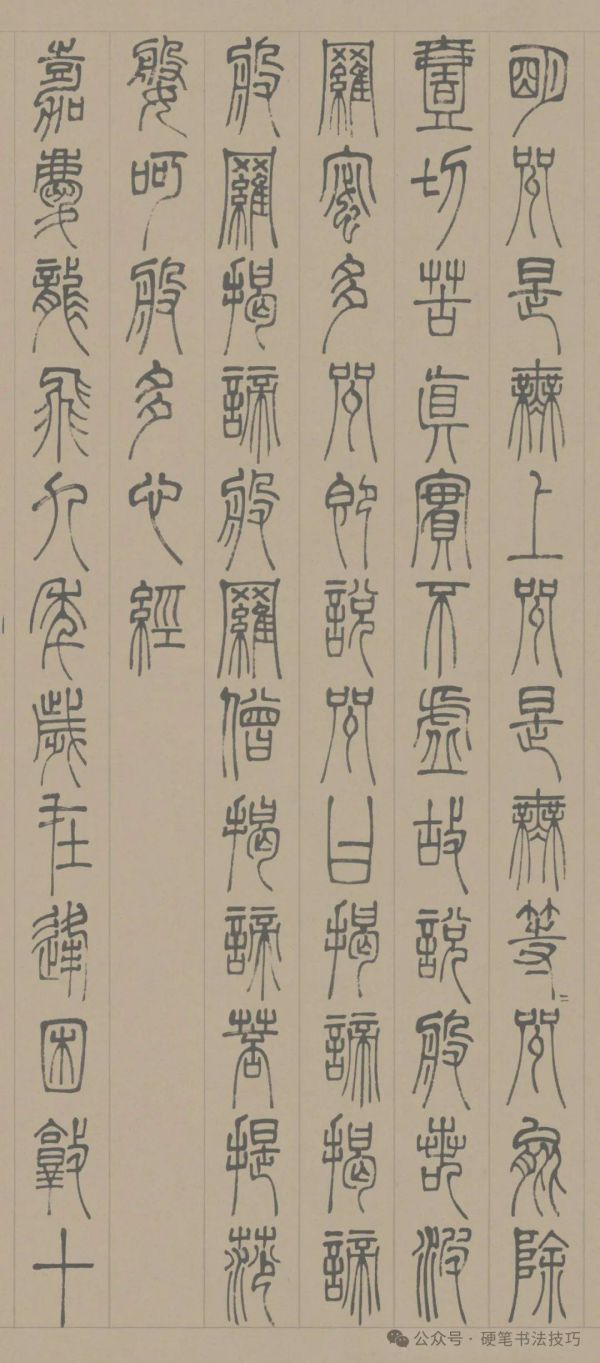 朙咒是無上咒是無等=咒能除
壹切苦眞實不虛故說般若波
羅蜜多咒即說咒曰揭諦揭諦
般羅揭諦般羅僧揭諦菩提莎
媻呵般多心經
嘉慶龍飛九年歲在逢困敦十
公众号 · 硬笔书法技巧